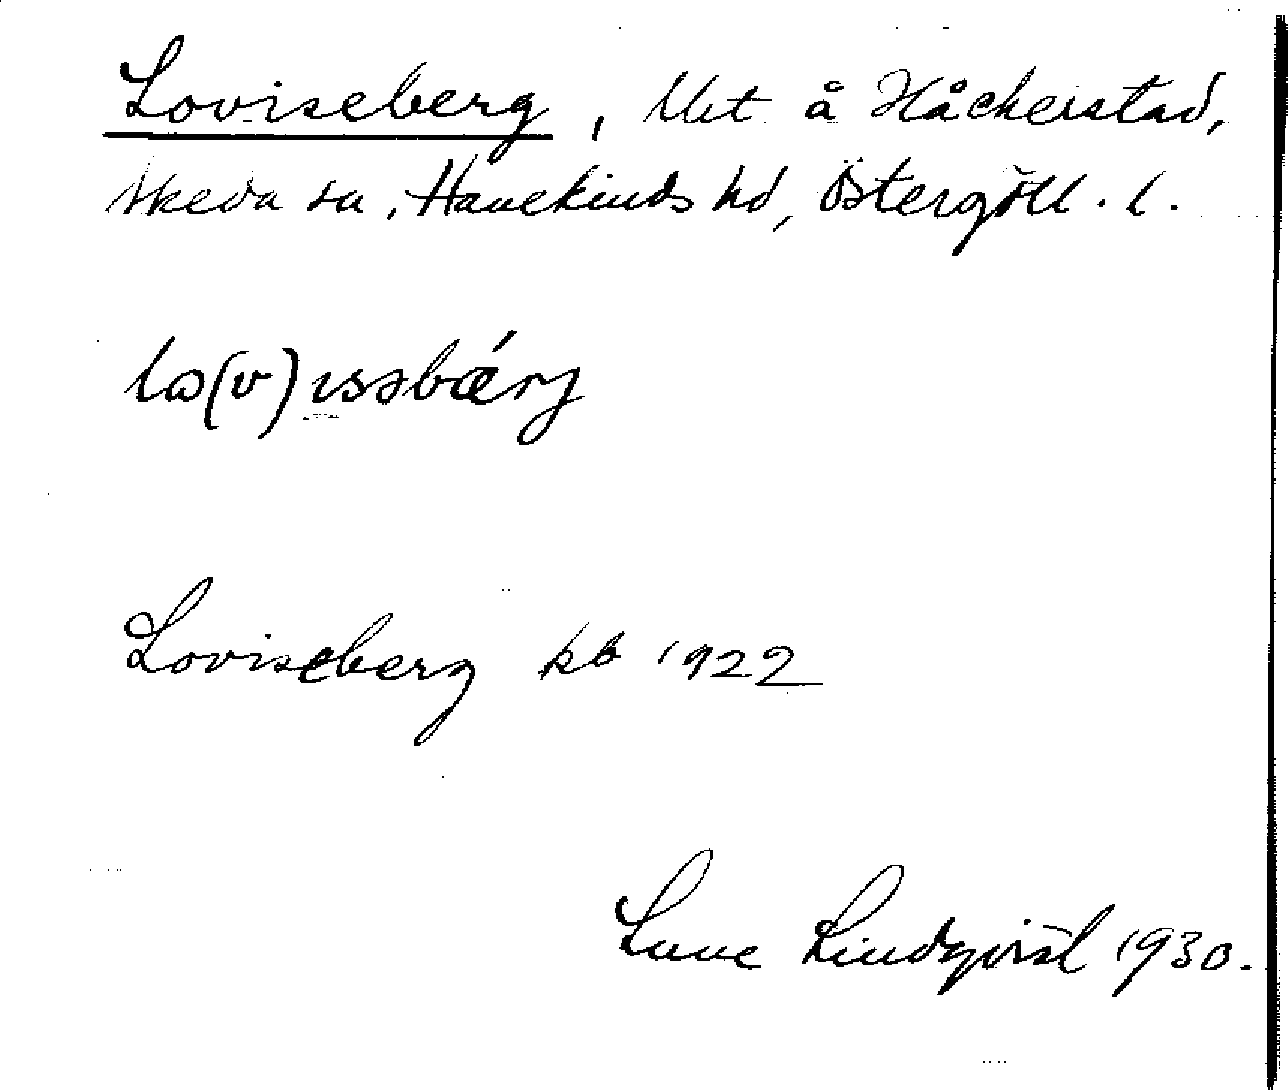 Loviseberg, Utet å Håckerstad,
Skeda sn, Hanekinds hd, Östergötl. l.
lɷ(v)ɩssbǽrj
Loviseberg kb 1922
Sune Lindqvist 1930.